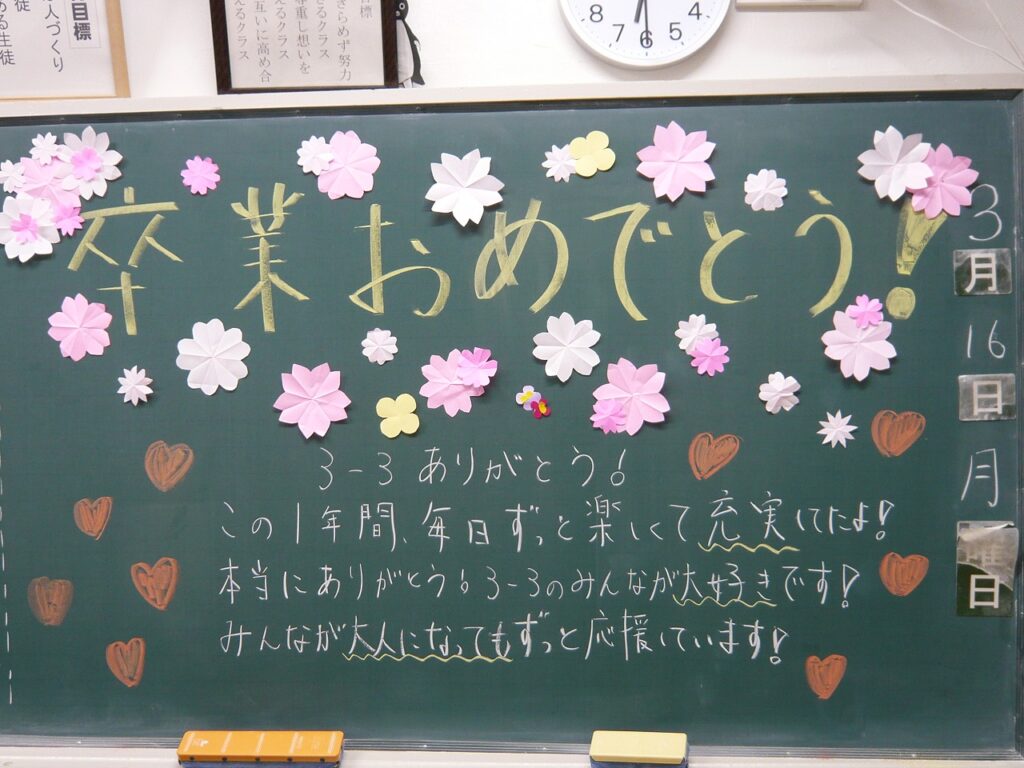 目標
人づくり
徒
める生徒
標
きらめず努力
きるクラス
尊重し想いを
えるクラス
互いに高め合
えるクラス
8 7 6 5 4
卒業おめでとう!
3
月
16
日
月
曜
日
3-3 ありがとう!
この1年間、毎日ずっと楽しくて充実してたよ!
本当にありがとう!3-3のみんなが大好きです!
みんなが大人になってもずっと応援しています!